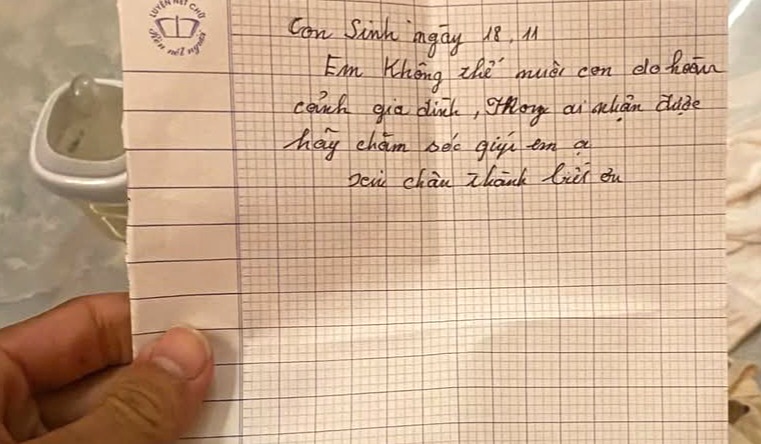 LUYỆN NÉT CHỮ
Rèn nết người
Con Sinh ngày 18.11
Em Không thể nuôi con do hoàn
cảnh gia đình, Mong ai nhận được
hãy chăm sóc giúp em ạ
xin chân thành biết ơn